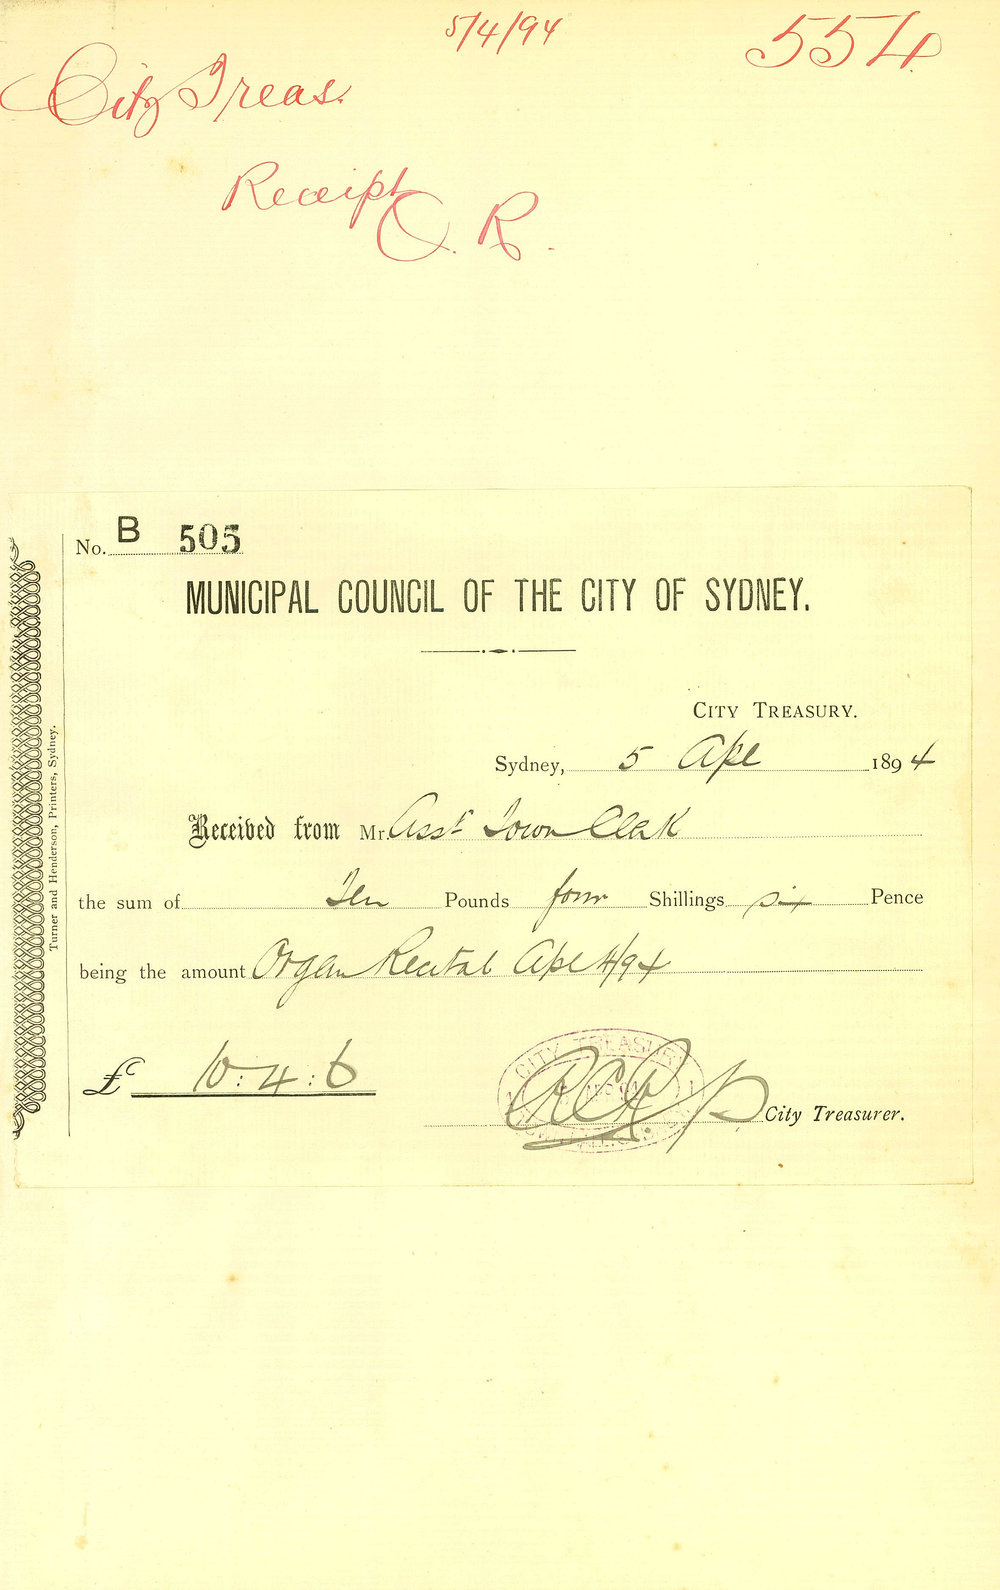 5/4/94
554
City Treas.
Receipt
O. R.
No. B 505
MUNICIPAL COUNCIL OF THE CITY OF SYDNEY.
CITY TREASURY.
Sydney, 5 Apl 1894
Received from Mr. Asst Town Clerk
the sum of Ten Pounds four Shillings six Pence
being the amount Organ Recital Apl 4/94
£ 10:4:6
CITY TREASURY
City Treasurer.
Turner and Henderson, Printers, Sydney.